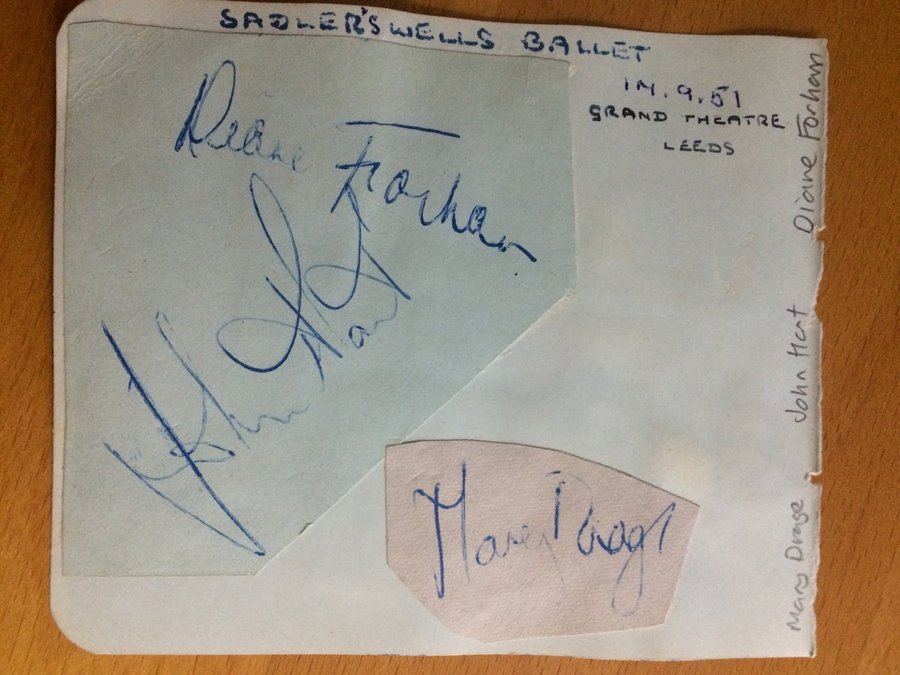 SADLER'S WELLS BALLET
14.9.51
GRAND THEATRE
LEEDS
Diane Forhan
John Hart
Mary Drage
Mary Drage John Hart Diane Forhan